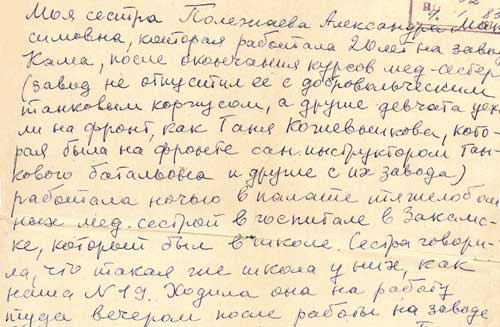 Моя сестра Полежаева Александра Мак-
симовна, которая работала 20 лет на заводе
Кама, после окончания курсов мед-сестер
(завод не отпустил ее с добровольческим
танковым корпусом, а другие девчата уеха-
ли на фронт, как Таня Кожевникова, кото-
рая была на фронте сан. инструктором тан-
кового батальона и другие с их завода)
работала ночью в палате тяжелоболь
ных мед. сестрой в госпитале в Закамс-
ке, который был в школе. Сестра говори-
ла, что такая же школа у них, как
наша №19. Ходила она на работу
туда вечером после работы на заводе